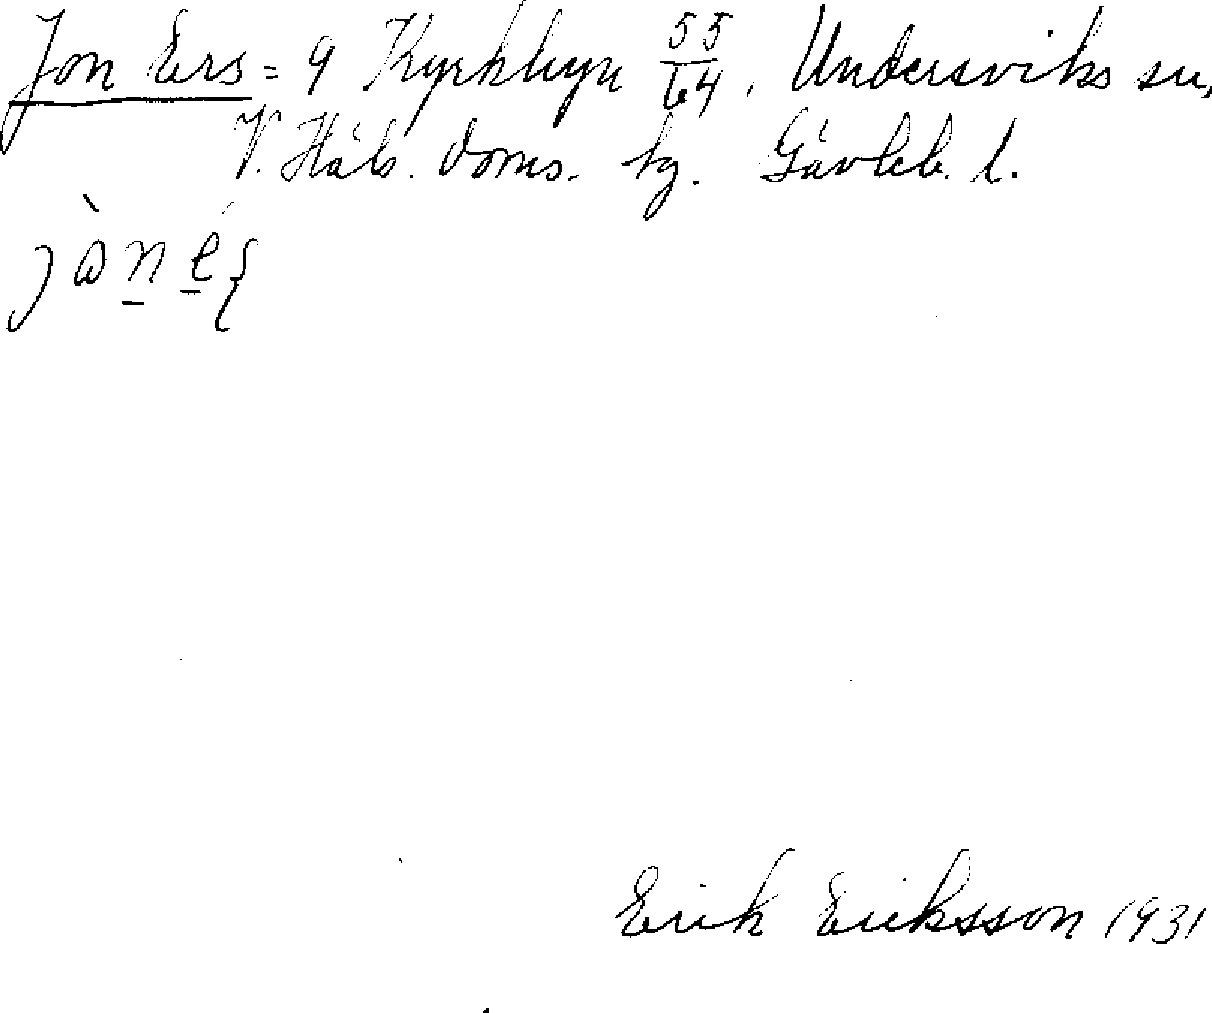 Jon Ers = 9 Kyrkbyn 55/64, Undersviks sn,
V. Häls. doms. hg. Gävleb. l.
Erik Eriksson 1931